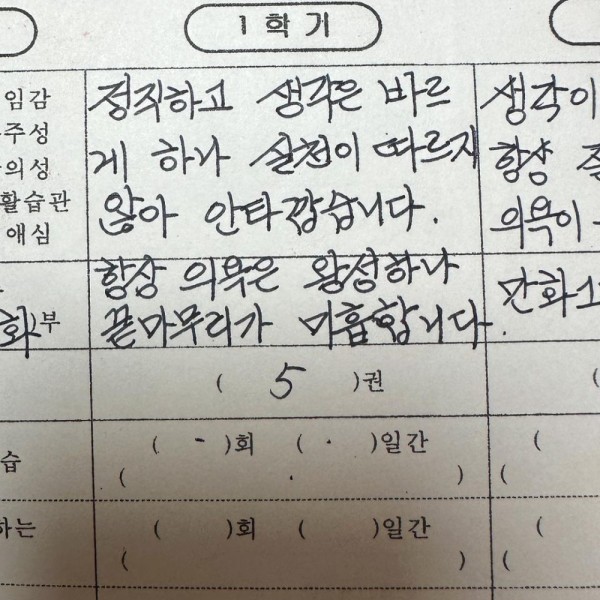 1 학 기
임감 정직하고 생각은 바르 생각이
주성 게 하나 실천이 따르지 항상
의성 않아 안타깝습니다. 의욕이
활습관
애심
항상 의욕은 왕성하나 만화
화 부 끝마무리가 미흡합니다.
( 5 )권 (
습 ( - )회 ( · )일간 (
( . ) (
하는 ( )회 ( )일간 (
( ) (